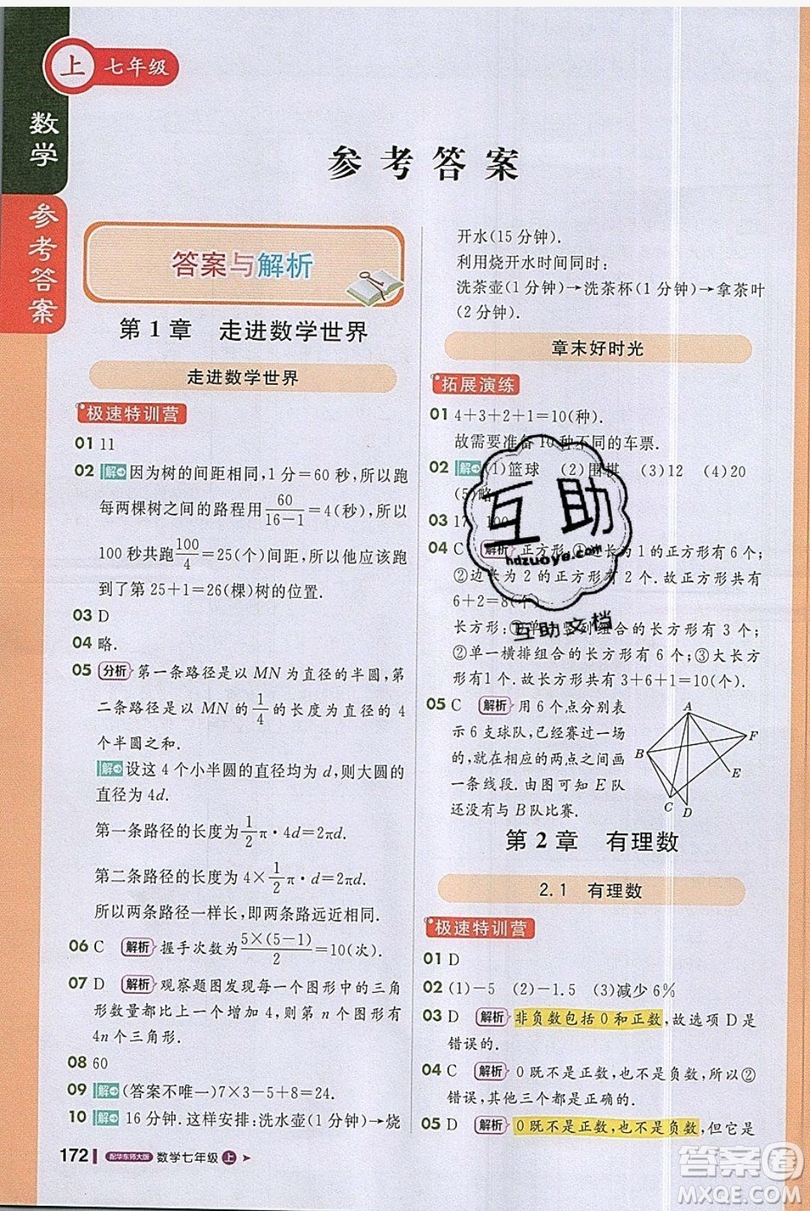 上 七年级
数学
参考答案
参考答案
答案与解析
第1章 走进数学世界
走进数学世界
极速特训营
01 11
02 解 因为树的间距相同,1分=60秒,所以跑
每两棵树之间的路程用60/(16-1)=4(秒),所以
100秒共跑100/4=25(个)间距,所以他应该跑
到了第25+1=26(棵)树的位置.
03 D
04 略.
05 分析 第一条路径是以MN为直径的半圆,第
二条路径是以MN的1/4的长度为直径的4
个半圆之和.
解 设这4个小半圆的直径均为d,则大圆的
直径为4d.
第一条路径的长度为1/2π·4d=2πd.
第二条路径的长度为4×1/2π·d=2πd.
所以两条路径的长度一样,即两条路远近相同.
06 C 解析 握手次数为5×(5-1)/2=10(次).
07 D 解析 观察题图发现每一个图形中的三角
形数量都比上一个增加4,则第n个图形有
4n个三角形.
08 60
09 解 (答案不唯一)7×3-5+8=24.
10 解 16分钟.这样安排:洗水壶(1分钟)→烧
开水(15分钟).
利用烧开水时间同时:
洗茶壶(1分钟)→洗茶杯(1分钟)→拿茶叶
(2分钟).
章末好时光
拓展演练
01 4+3+2+1=10(种).
故需要准备10种不同的车票.
02 解 (1)篮球 (2)围棋 (3)12 (4)20
(5)略
03
04 C 解析 正方形:①边长为1的正方形有6个;
②边长为2的正方形有2个.故正方形共有
6+2=8(个).
长方形:①单一竖列组合的长方形有3个;
②单一横排组合的长方形有6个;③大长方
形有1个.故长方形共有3+6+1=10(个).
05 C 解析 用6个点分别表
示6支球队,已经赛过的
就在相应的两点之间画
一条线段.由图可知E队
还没有与B队比赛.
A
F
B
E
C
D
第2章 有理数
2.1 有理数
极速特训营
01 D
02 (1)-5 (2)-1.5 (3)减少6%
03 D 解析 非负数包括0和正数,故选项D是
错误的.
04 C 解析 0既不是正数,也不是负数,所以②
错误,其他三个都是正确的.
05 D 解析 0既不是正数,也不是负数,但它是
172 配华东师大版 数学七年级 上
互助
hdzuoye.com
互助文档
答案圈
MXQE.COM